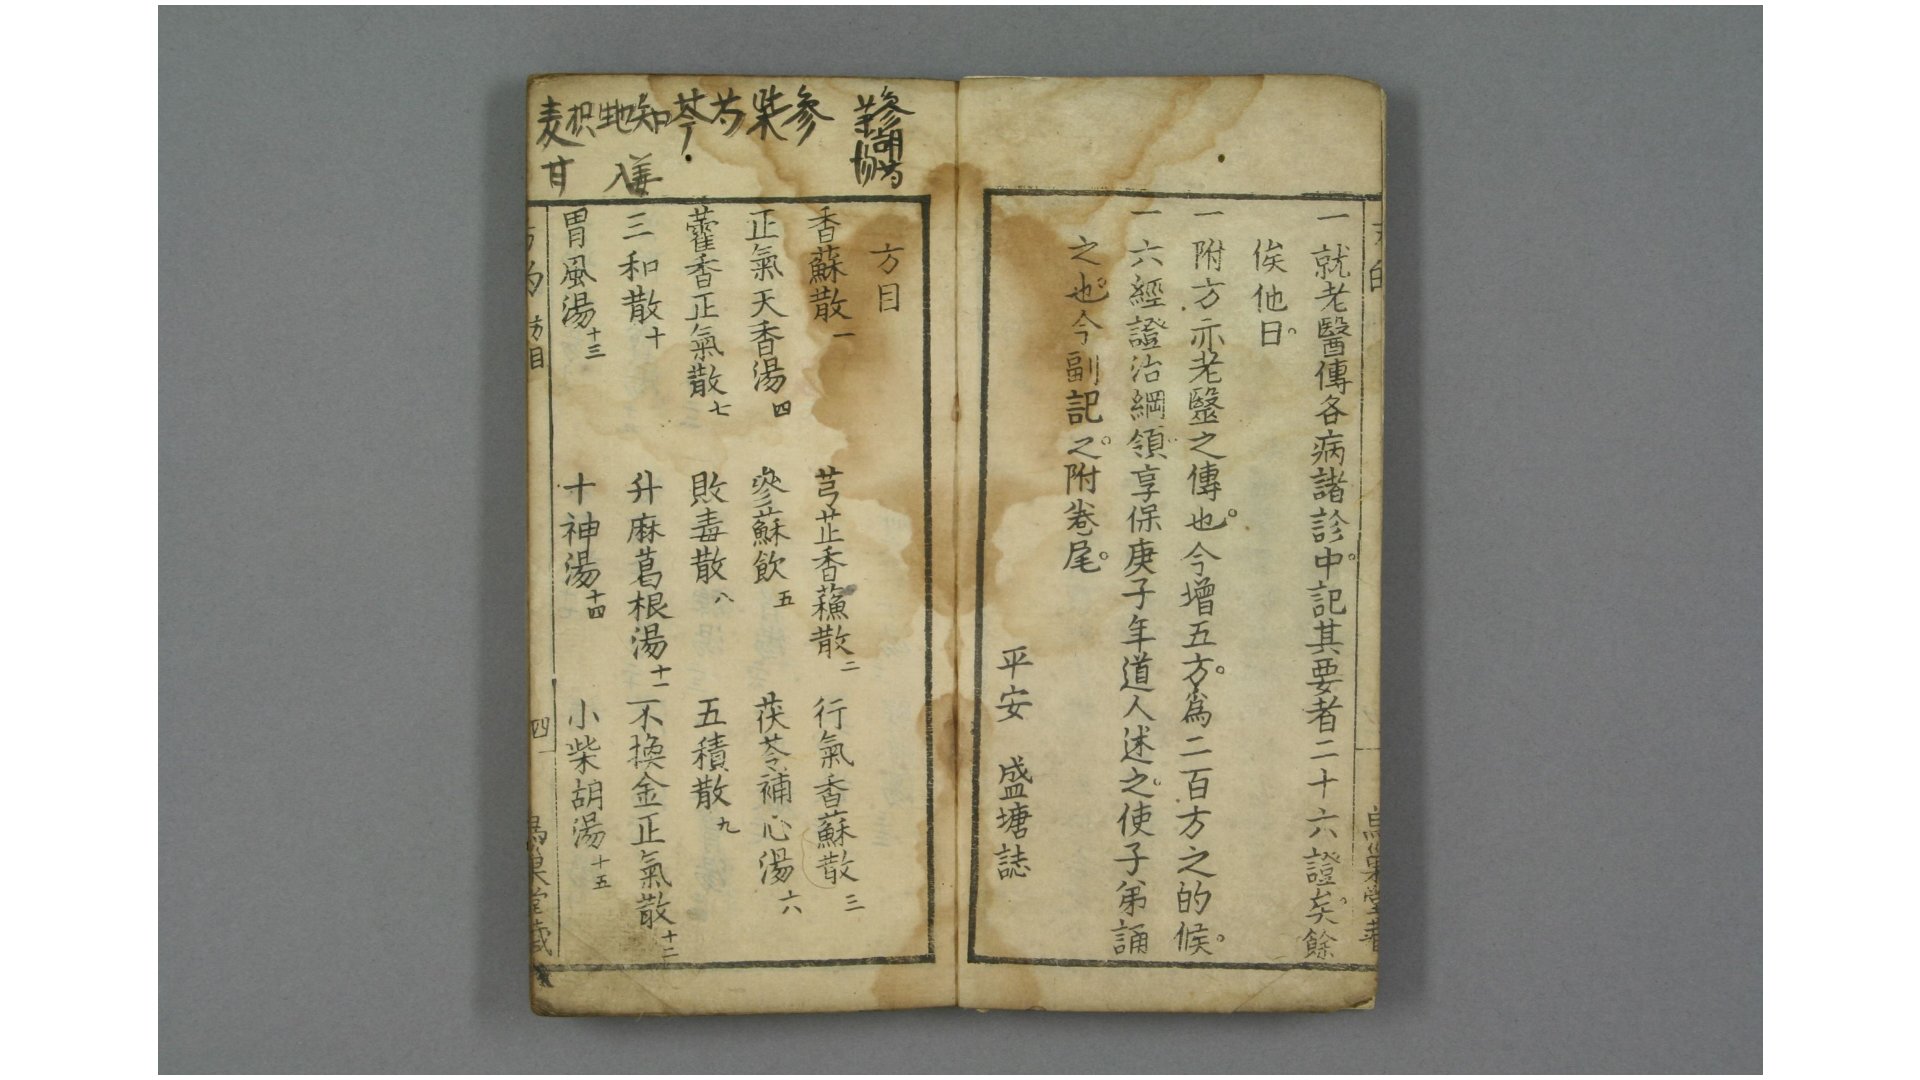 一就老醫傳各病諸診中。記其要者二十六證矣。餘
俟他日。
一附方亦老醫之傳也。今增五方。爲二百方之的候。
一六經證治綱領享保庚子年道人述之。使子弟誦
之也。今副記之。附卷尾。
平安 盛塘誌
方目
香蘇散一 芎芷香蘓散二 行氣香蘇散三
正氣天香湯四 參蘇飲五 茯苓補心湯六
藿香正氣散七 敗毒散八 五積散九
三和散十 升麻葛根湯十一 不換金正氣散十二
胃風湯十三 十神湯十四 小柴胡湯十五
參柴芍芩知地枳麦
姜入 甘
方的 方目
四